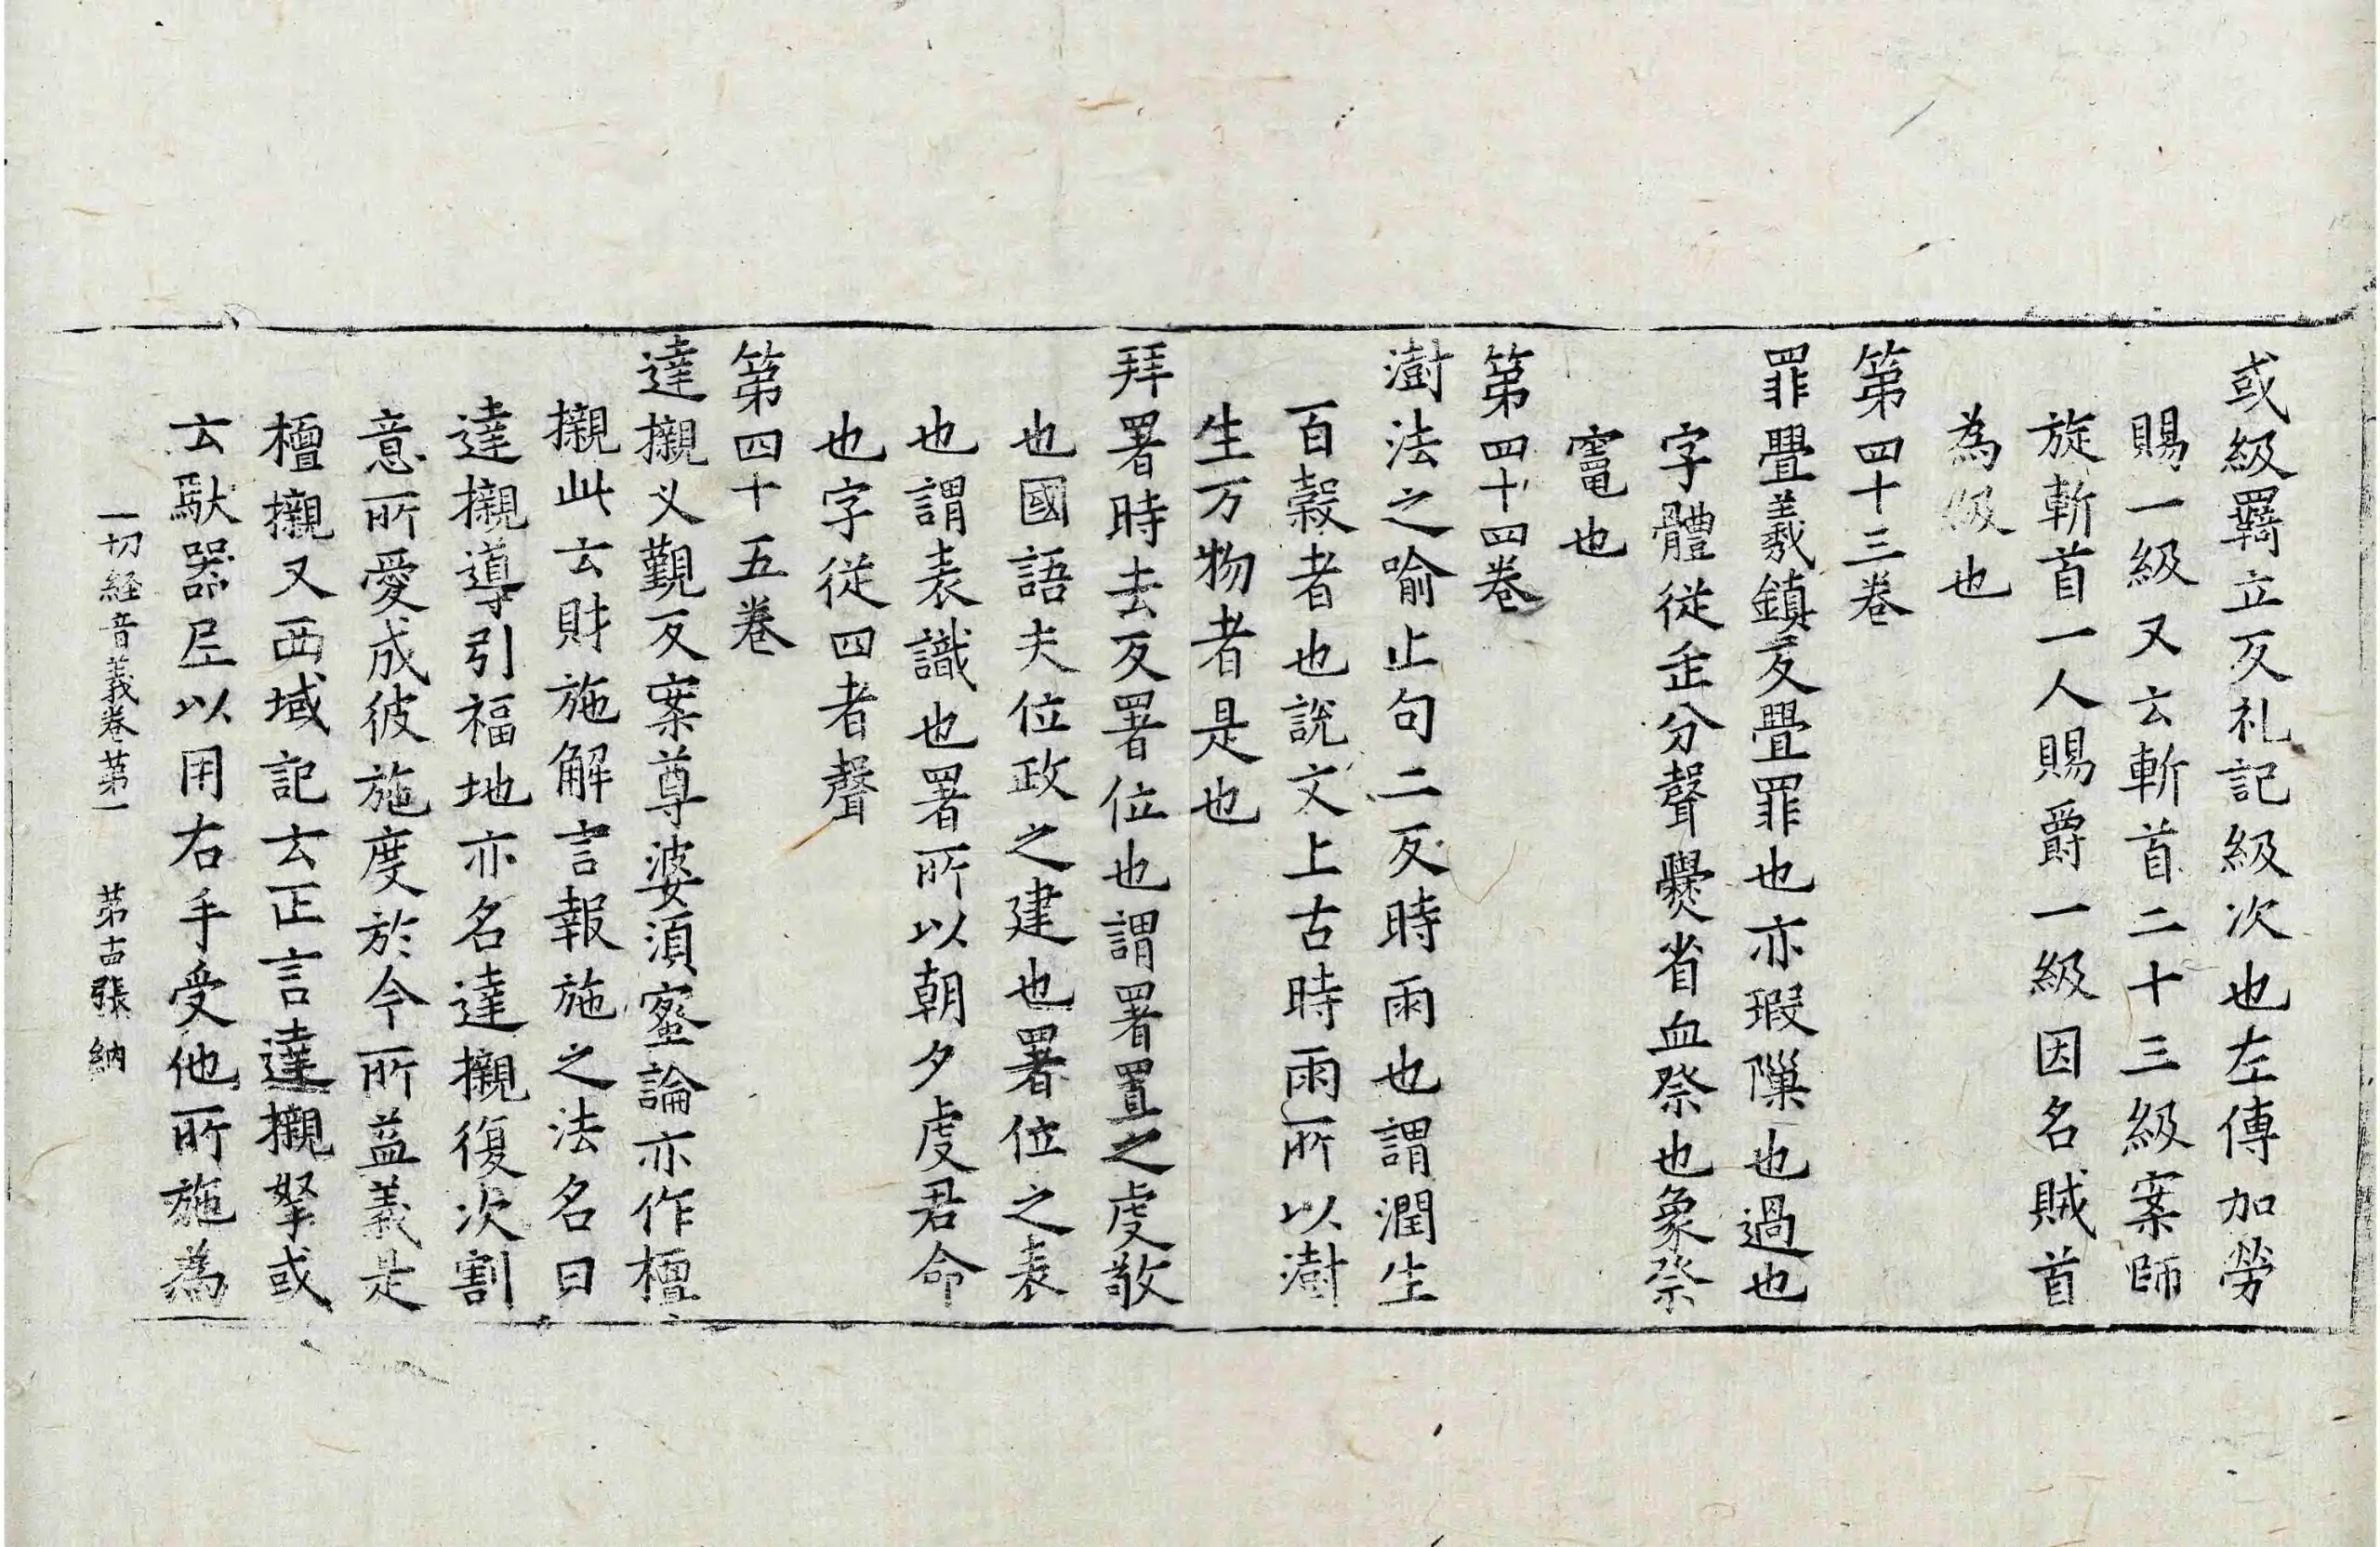 或級羇立反礼記級次也左傳加勞
賜一級又云斬首二十三級案師
旋斬首一人賜爵一級因名賊首
為級也
第四十三卷
罪舋羲鎮反舋罪也亦瑕隟也過也
字體從臿分聲爨省血祭也象祭
竃也
第四十四卷
澍法之喻止句二反時雨也謂潤生
百穀者也說文上古時雨所以澍
生万物者是也
拜署時去反署位也謂署置之䖏敬
也國語夫位政之建也署位之表
也謂表識也署所以朝夕䖏君命
也字従四者聲
第四十五卷
達攡义觀反案尊婆湏蜜論亦作檀
攡此云財施解言報施之法名曰
達攡導引福地亦名達攡復次割
意所愛成彼施度於今所益義是
檀攡又西域記云正言達攡拏或
云馱器尼以用右手受他所施為
一切経音義卷第一 第十四張 納